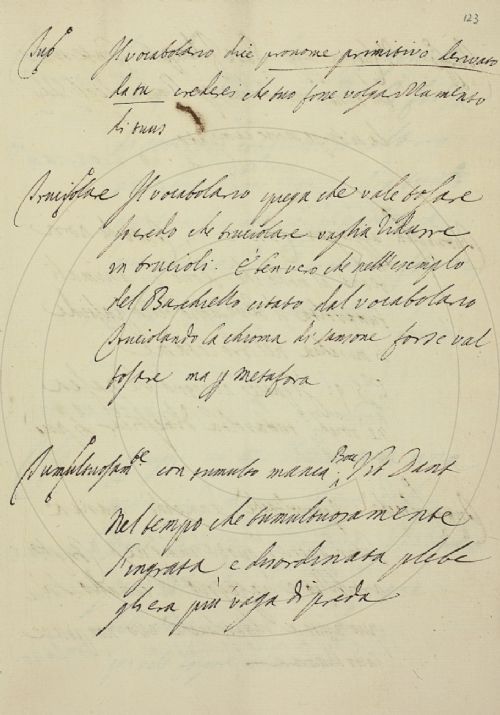 123
Tuo Il vocabolario dice pronome primitivo derivato
da tu crederei che tuo fosse volgarizzamento
di tuus
Truciolare Il vocabolario spiega che vale tosare
io credo che truciolare voglia ridurre
in trucioli. È ben vero che nell'esempio
del Burchiello citato dal vocabolario
Truciolando la chioma di sansone forse val
tosare ma p metafora
Tumultuosam.te con tumulto manca Bocc Vit Dant
Nel tempo che tumultuosamente
l'ingrata e disordinata plebe
gli era più vaga di preda